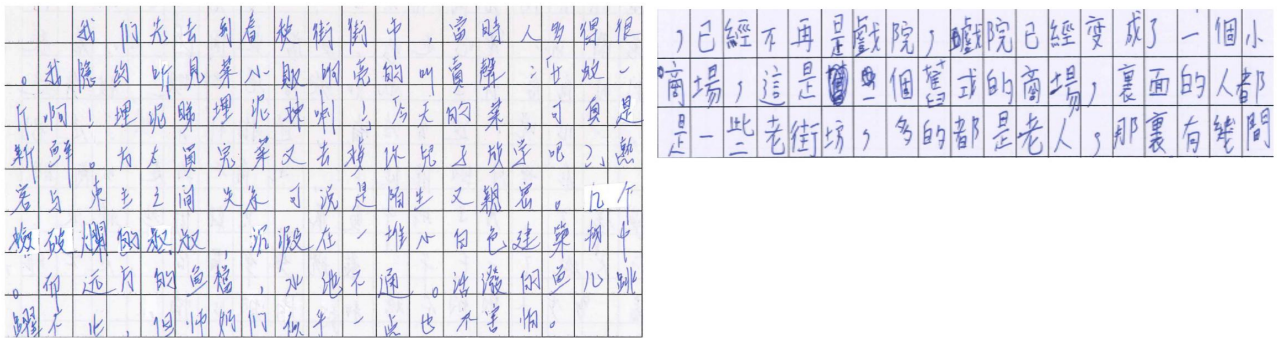 我们先去到春秧街街市，當時人多得很
。我隱約听見菜小販响亮的叫賣聲：「廿蚊一
斤啊！埋泥睇埋泥揀喇！」「今天的菜，可真是
新鮮。方太買完菜又去接你兒子放学吧？」熟
客与東主之间关系可说是陌生又親密。几个
破爛的，沉澱在一堆小白色建築物中
。而远方的鱼檔，水泄不通。活潑的鱼儿跳
躍不止，但师奶们似乎一点也不害怕。
，已經不再是戲院，戲院已經变成了一個小
商場，這是一個舊式的商場，裏面的人都
是一些老街坊，多的都是老人，那裏有幾間